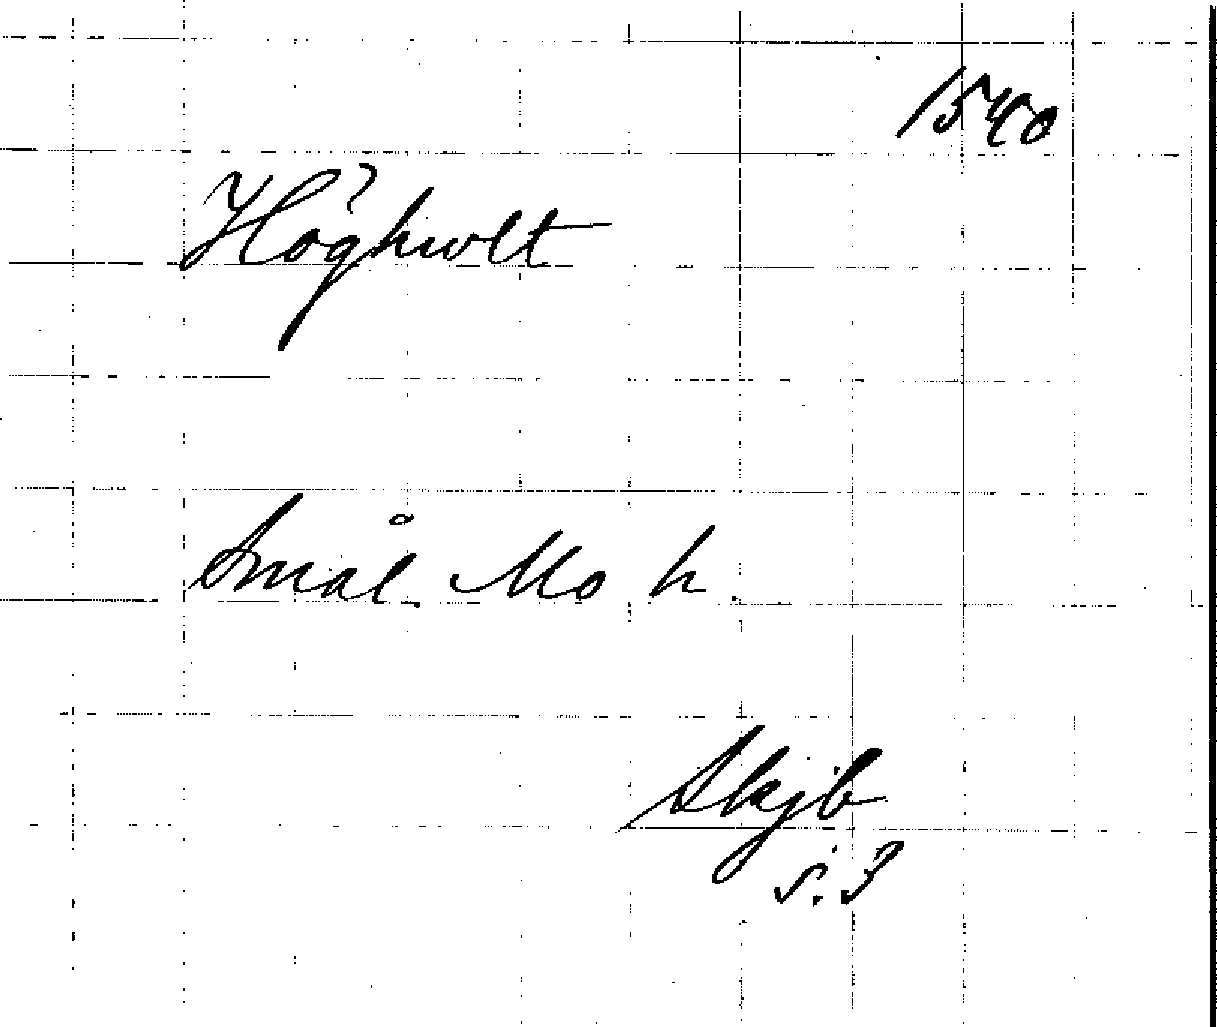 1540
Höghwlt
Smål. Mo h.
Skjb
s. 3